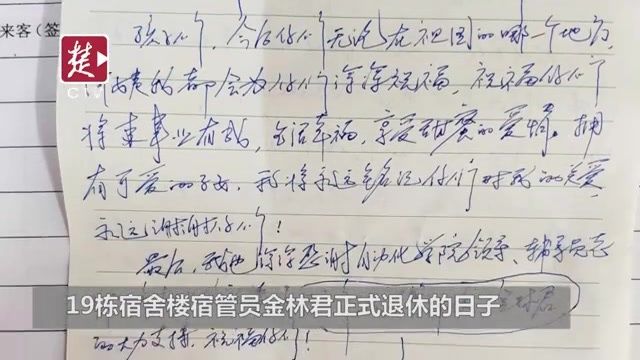 来客(签
楚
孩子们，今后你们无论在祖国的哪一个地方，
阿姨我都会为你们深深祝福，祝福你们
将来事业有成，生活幸福，享受甜蜜的爱情。拥
有可爱的子女，我将永远铭记你们对我的关爱，
永远谢谢你们！
最后，我也深深感谢自动化学院领导、辅导员
19栋宿舍楼宿管员金林君正式退休的日子
的大力支持，祝福你们！